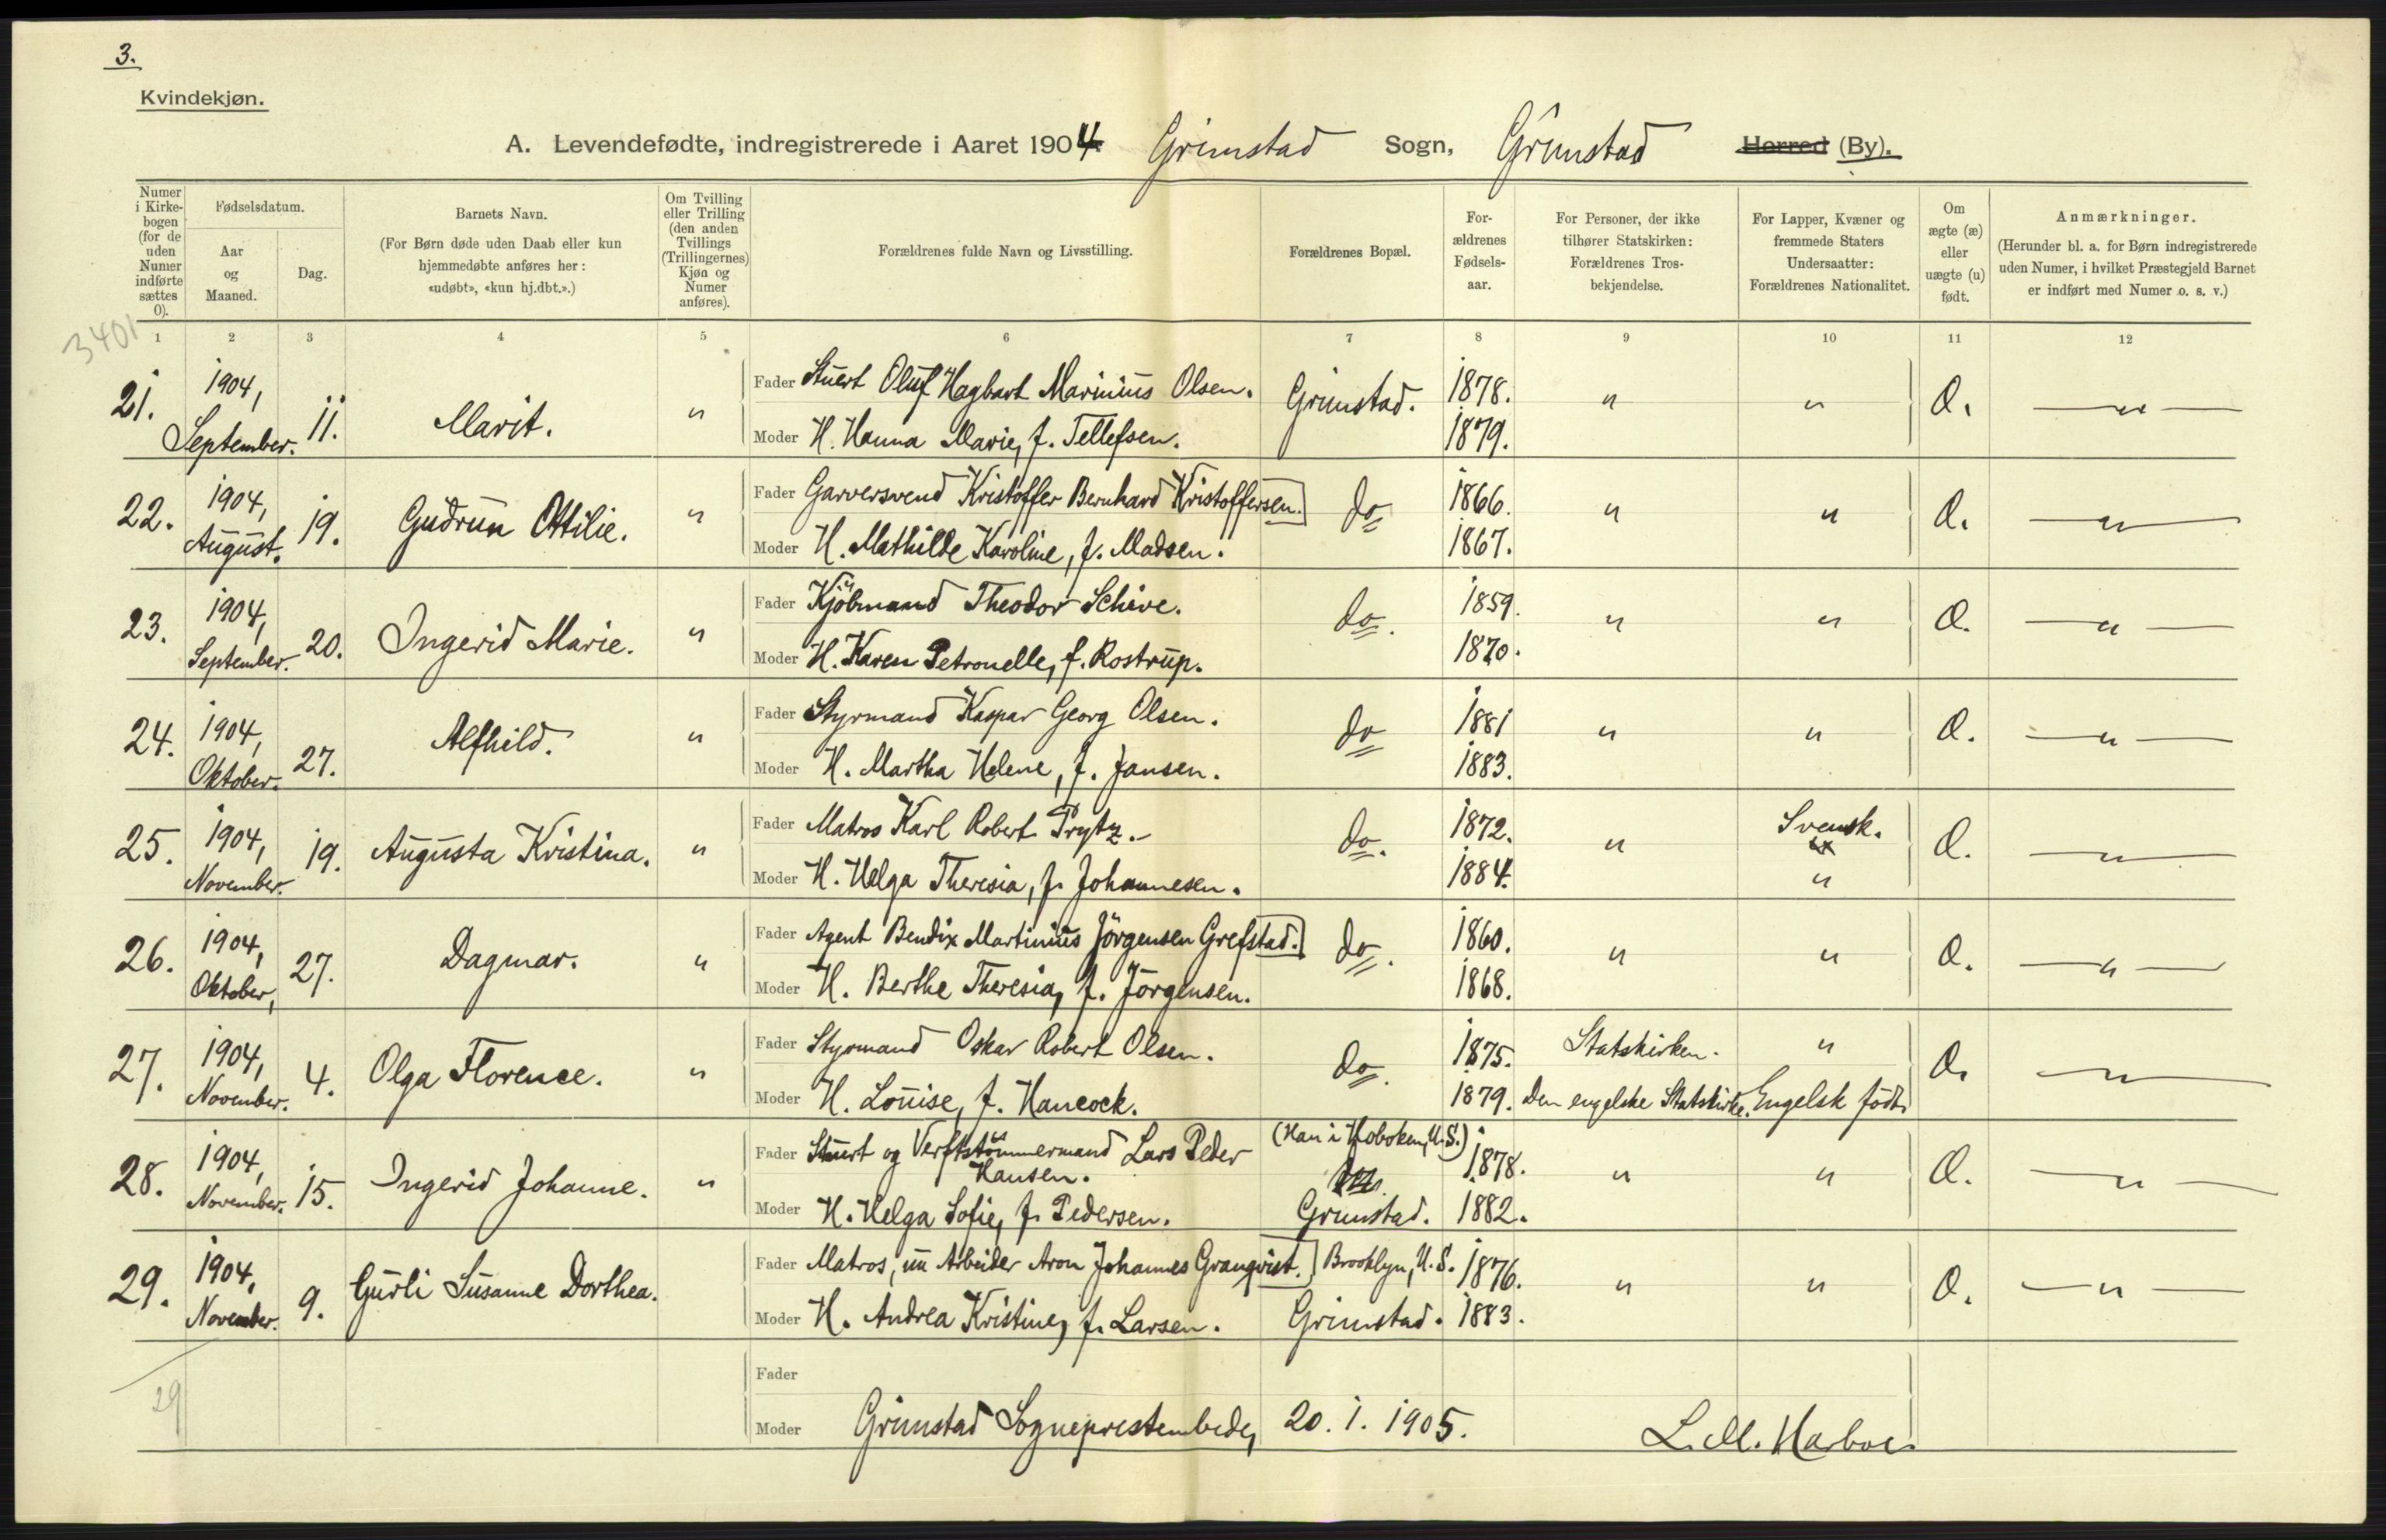 3.
Kvindekjøn.
A. Levendefødte, indregistrerede i Aaret 1904 Grimstad Sogn, Grimstad Herred (By).
Numer i Kirkebogen (for de uden Numer indførte sættes 0).
Fødselsdatum.
Aar og Maaned.
Dag.
Barnets Navn.
(For Børn døde uden Daab eller kun hjemmedøbte anføres her: «udøbt», «kun hj.dbt.».)
Om Tvilling eller Trilling (den anden Tvillings (Trillingernes) Kjøn og Numer anføres).
Forældrenes fulde Navn og Livsstilling.
Forældrenes Bopæl.
For-ældrenes Fødsels-aar.
For Personer, der ikke tilhører Statskirken: Forældrenes Tros-bekjendelse.
For Lapper, Kvæner og fremmede Staters Undersaatter: Forældrenes Nationalitet.
Om ægte (æ) eller uægte (u) født.
Anmærkninger.
(Herunder bl. a. for Børn indregistrerede uden Numer, i hvilket Præstegjeld Barnet er indført med Numer o. s. v.)
3401
1 2 3 4 5 6 7 8 9 10 11 12
21. 1904, September. 11. Marit. " Fader Stuert Oluf Hagbart Marinius Olsen. Grimstad. 1878. " " — " —
Moder H. Hanna Marie, f. Tellefsen. 1879.
22. 1904, August. 19. Gudrun Ottilie. " Fader Garversvend Kristoffer Bernhard Kristoffersen. do 1866. " " — " —
Moder H. Mathilde Karoline, f. Madsen. 1867.
23. 1904, September. 20. Ingerid Marie. " Fader Kjöbmand Theodor Schive. do. 1859. " " — " —
Moder H. Karen Petronelle, f. Rostrup. 1870.
24. 1904, Oktober. 27. Alfhild. " Fader Styrmand Kaspar Georg Olsen. do 1881 " " — " —
Moder H. Martha Helene, f. Jansen. 1883.
25. 1904, November. 19. Augusta Kristina. " Fader Matros Karl Robert Prytz. do. 1872. " Svensk. — " —
Moder H. Helga Theresia, f. Johannesen. 1884. "
26. 1904, Oktober, 27. Dagmar. " Fader Agent Bendix Martinius Jörgensen Grefstad. do. 1860. " " — " —
Moder H. Berthe Theresia, f. Jörgensen. 1868.
27. 1904, November. 4. Olga Florence. " Fader Styrmand Oskar Robert Olsen. do. 1875. Statskirken. " — " —
Moder H. Louise, f. Hancock. 1879. Den engelske Statskirke. Engelsk födt.
28. 1904, November. 15. Ingerid Johanne. " Fader Stuert og Verftstömmermand Lars Peder Hansen. (Han i Hoboken, U.S.) 1878. " " — " —
Moder H. Helga Sofie, f. Pedersen. Grimstad. 1882.
29. 1904, November. 9. Gurli Susanne Dorthea. Fader Matros, nu Arbeider Aron Johannes Granqvist. Brooklyn, U.S. 1876. " " — " —
Moder H. Andrea Kristine, f. Larsen. Grimstad. 1883.
29
Fader
Moder Grimstad Sogneprestembede, 20. 1. 1905. L. M. Harboe.